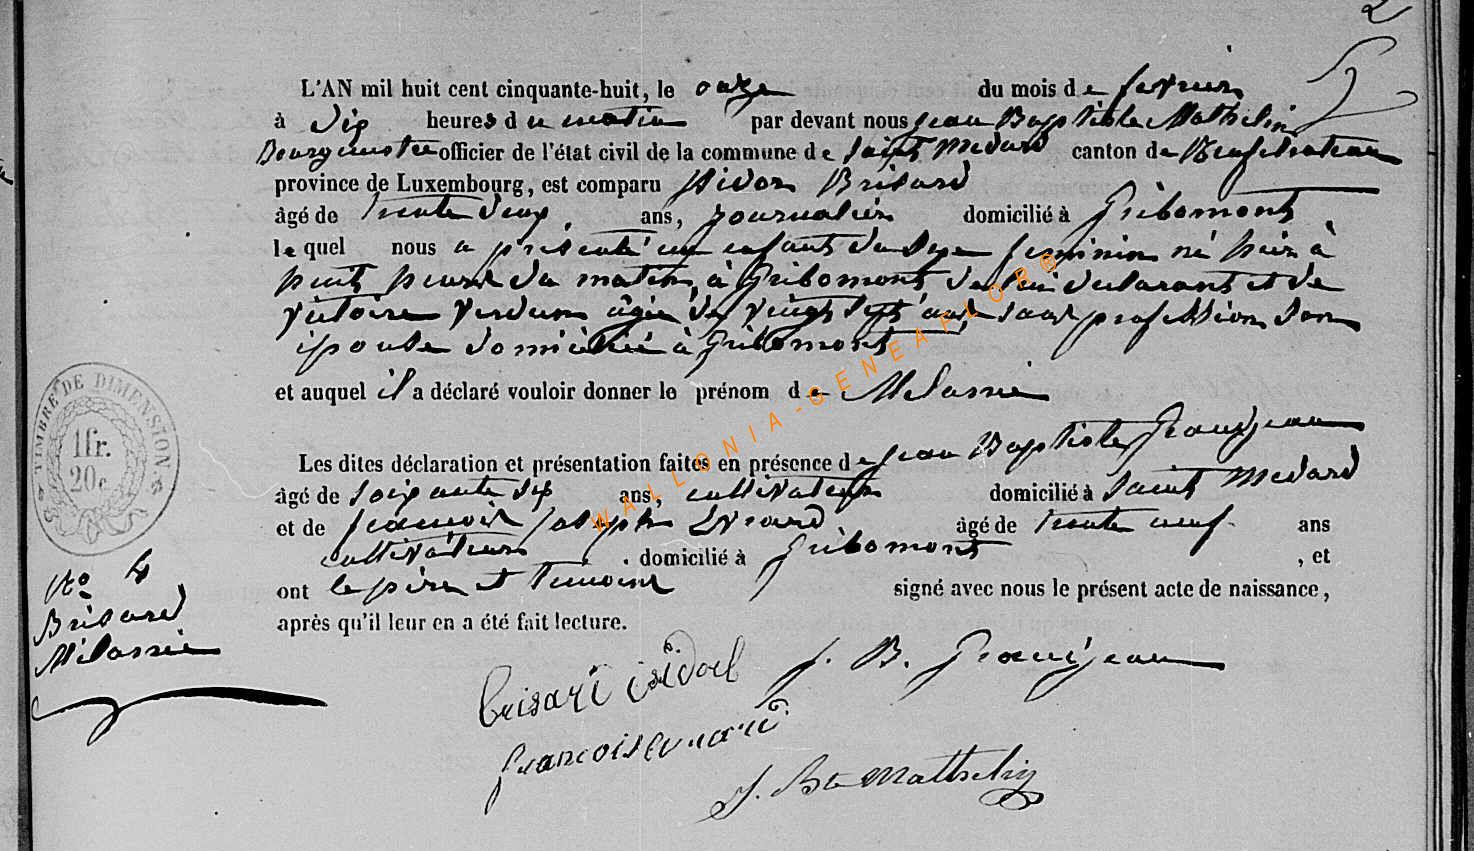 2
L'AN mil huit cent cinquante-huit, le onze du mois de fevrier
à dix heures du matin par devant nous Jean Baptiste Mathelin
Bourgmestre officier de l'état civil de la commune de Saint Medard canton de Neufchateau
province de Luxembourg, est comparu Isidor Brisard
âgé de trente deux ans, journalier domicilié à Gribomont
lequel nous a présenté un enfant du sexe feminin né hier à
huit heures du matin, à Gribomont de lui declarant et de
victoire Verdun âgée de vingt sept ans sans profession son
épouse domiciliée à Gribomont
et auquel il a déclaré vouloir donner le prénom de Melanie
Les dites déclaration et présentation faites en présence de Jean Baptiste Grandjean
âgé de soixante six ans, cultivateur domicilié à Saint Medard
et de francois Joseph Evrard âgé de trente neuf ans
cultivateur, domicilié à Gribomont, et
ont le père et temoins signé avec nous le présent acte de naissance,
après qu'il leur en a été fait lecture.
TIMBRE DE DIMENSION
1fr.
20c
No 4
Brisard
Mélanie
brisard isidor J. B. Grandjean
francois evrard
J. Bte Mathelin
WALLONIA-GENEAFLOR®